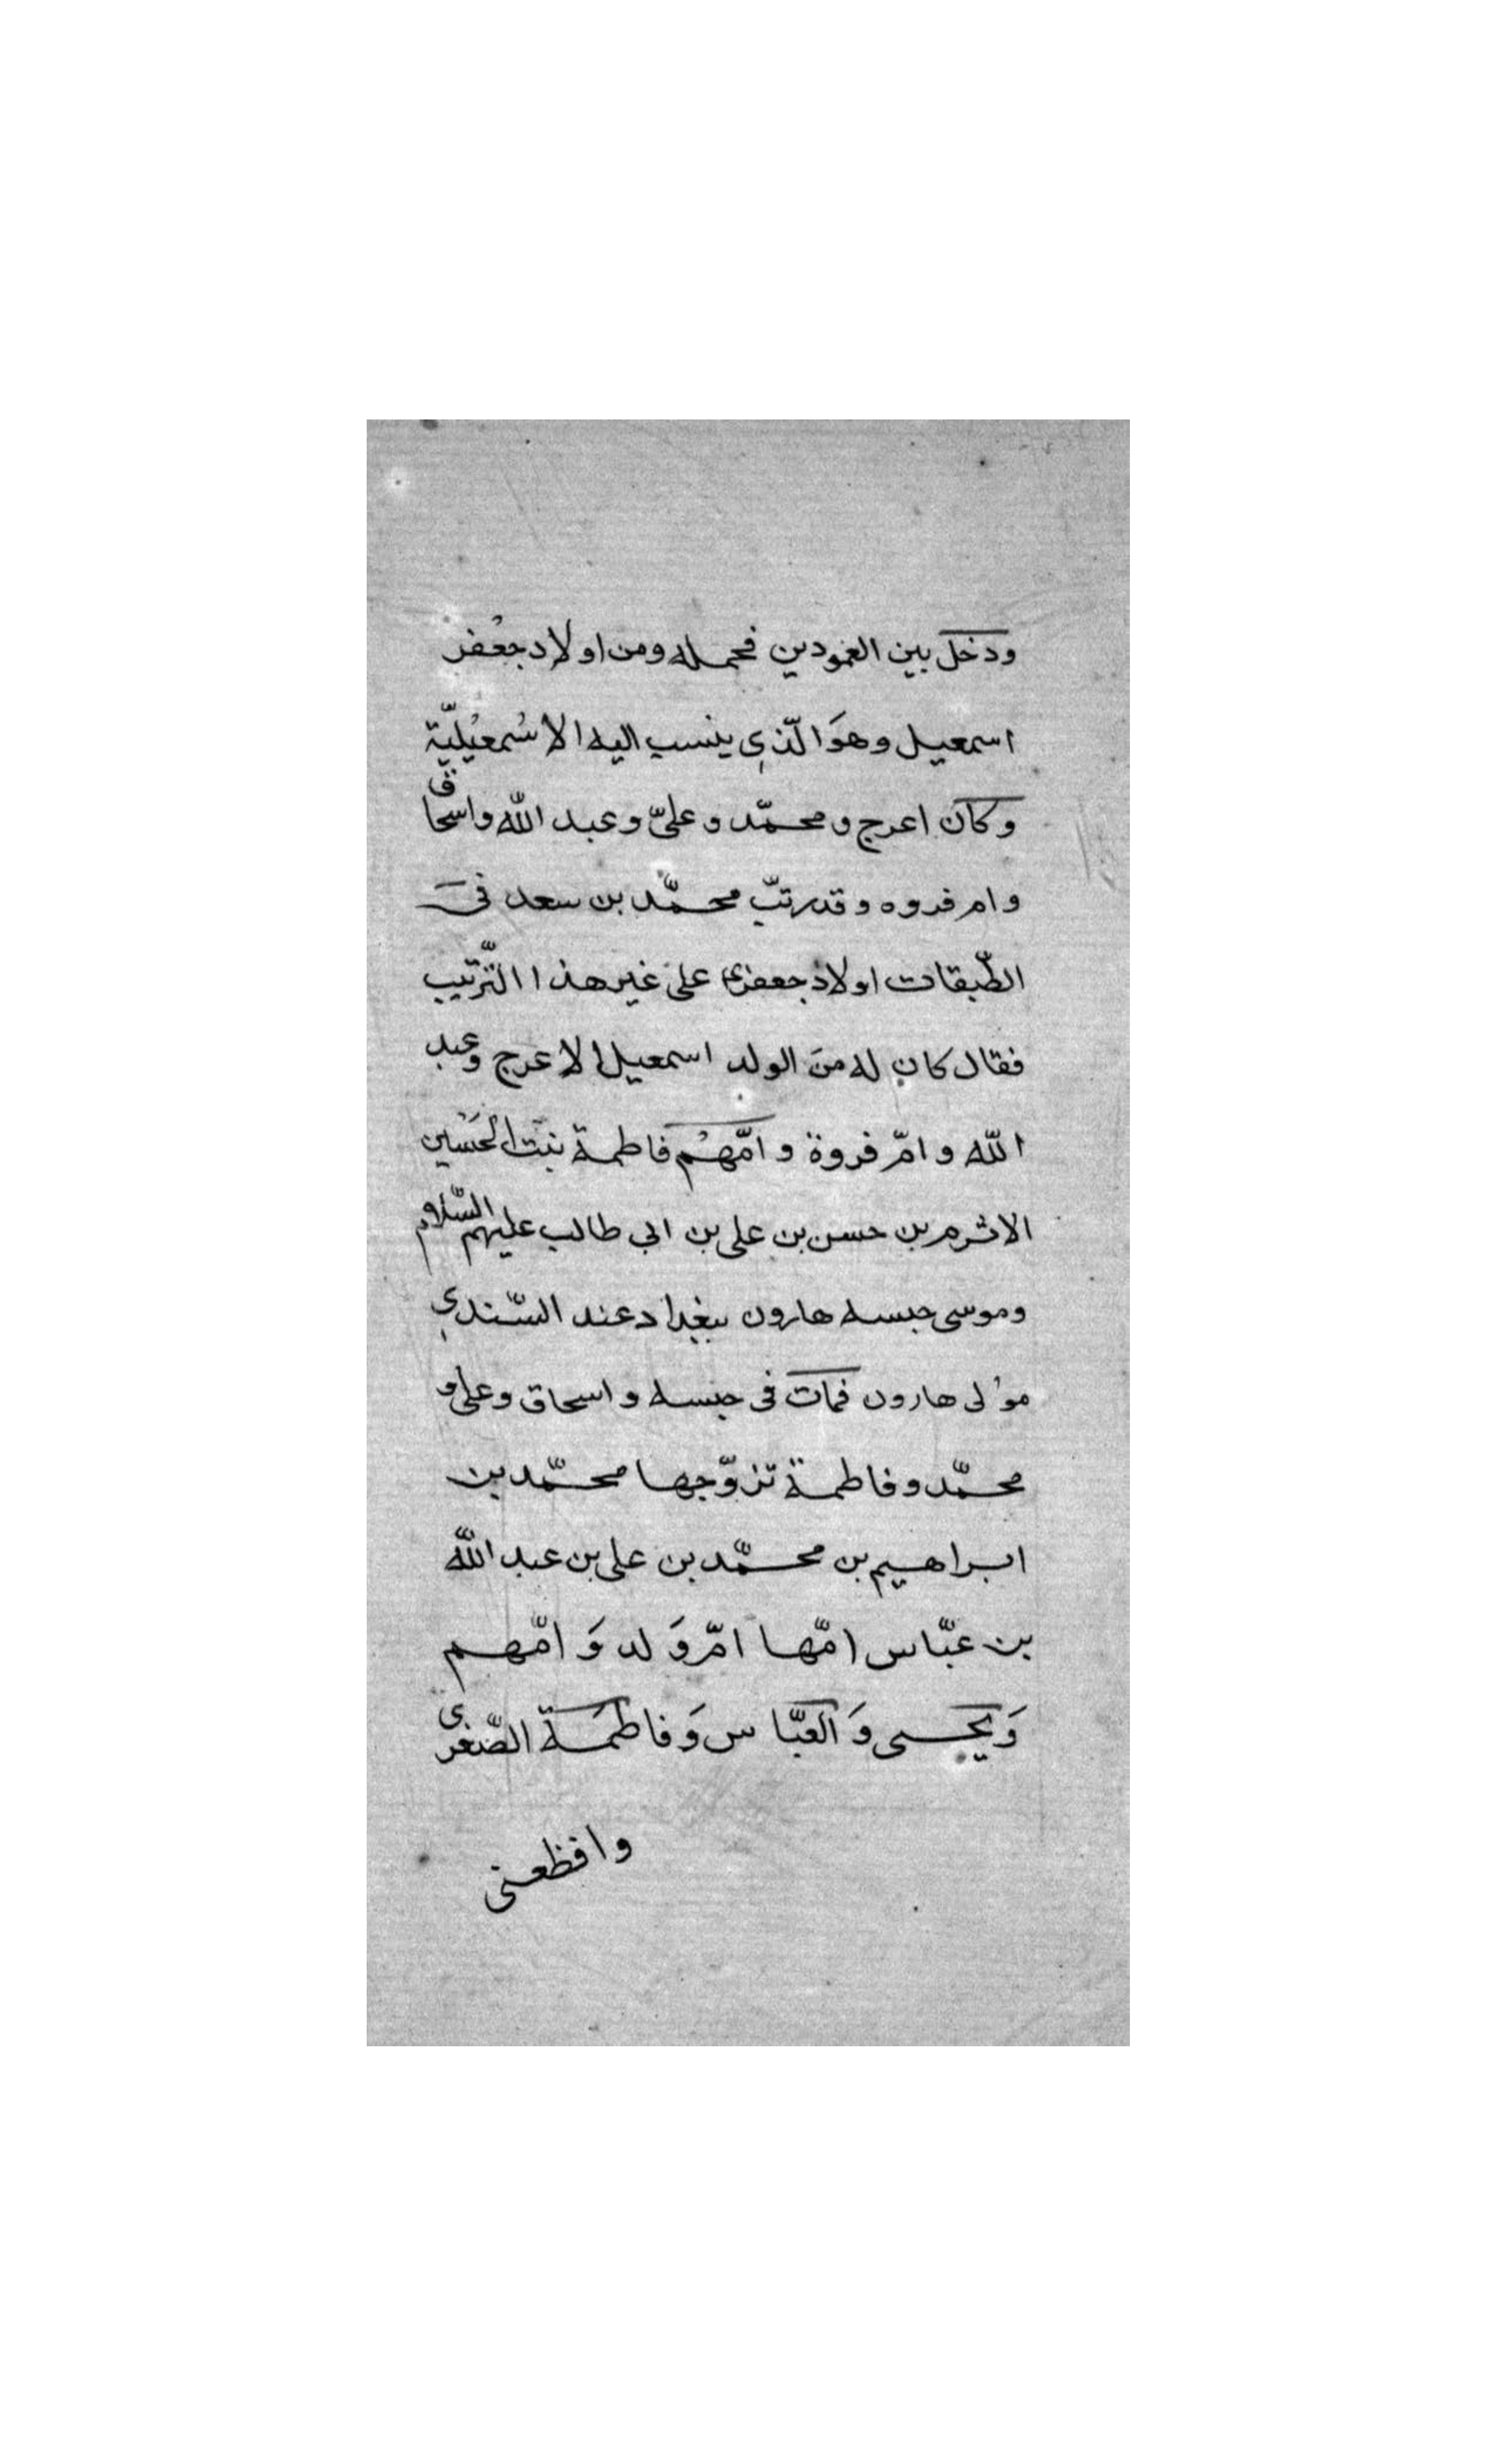 ودخل بين العمودين فحمله ومن اولاد جعفر
اسمعيل وهوَ الّذي ينسب اليه الاسْمعيْليّة
وكان اعرج ومحمّد وعلىّ وعبد اللّه واسحاق
وام فروه وقد رتبّ محمّد بن سعد فى
الطّبقات اولاد جعفر على غير هذا التّرتيب
فقال كان له منَ الولد اسمعيل الاعرج وعبد
اللّه وامّ فروة وامّهُم فاطمة بنت الحَسَين
الاثرم بن حسن بن على بن ابى طالب عليهم السّلام
وموسى حبسه هارون ببغداد عند السّندي
موْلى هارون فمات فى حبسه واسحاق وعلى و
محمّد وفاطمة تزوّجها محمّد بن
ابراهيم بن محمّد بن على بن عبد اللّه
بن عبّاس امّها امّ وَلد وَ امّهم
وَيحيى وَ العبّاس وَ فاطمَة الصّغرى
وافظعنى